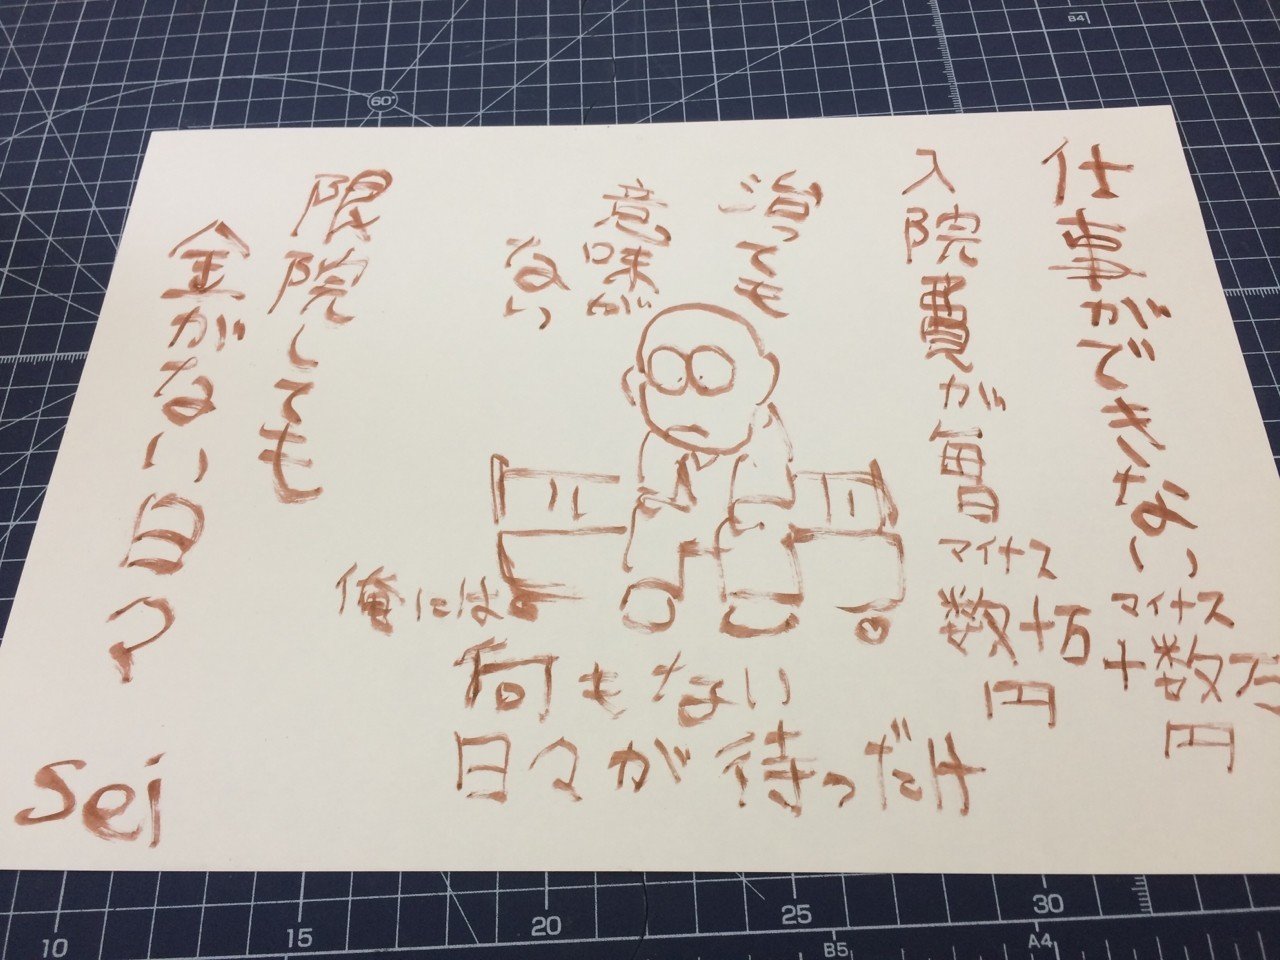 仕事ができない
マイナス
十数万
円
入院費が毎日
マイナス
数十万
円
治っても
意味が
ない
俺には
何もない
日々が待つだけ
退院しても
金がない日々
sei
60°
B4
10
15
20
25
30
B5
A4